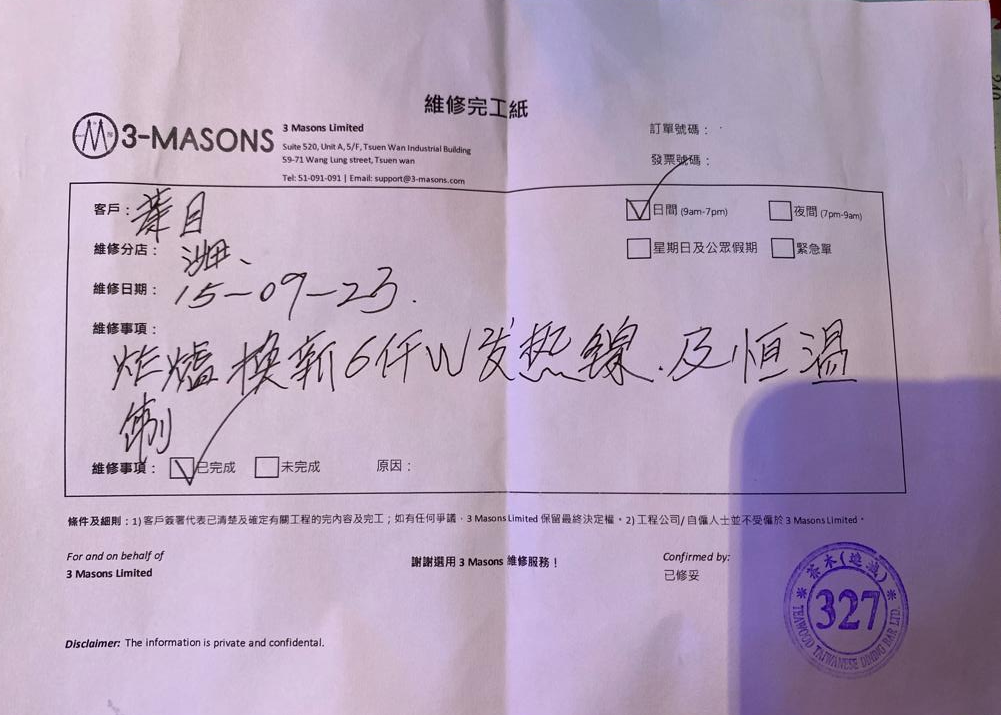 維修完工紙
3-MASONS
3 Masons Limited
Suite 520, Unit A, 5/F, Tsuen Wan Industrial Building
59-71 Wang Lung street, Tsuen wan
Tel: 51-091-091 | Email: support@3-masons.com
訂單號碼：
發票號碼：
客戶：
維修分店：
維修日期： 15-09-23.
日間 (9am-7pm) 夜間 (7pm-9am)
星期日及公眾假期 緊急單
維修事項：
炸爐換新6仟W发热線.及恒温
制
維修事項： 已完成 未完成 原因：
條件及細則：1) 客戶簽署代表已清楚及確定有關工程的完內容及完工；如有任何爭議，3 Masons Limited 保留最終決定權。2) 工程公司/ 自僱人士並不受僱於 3 Masons Limited。
For and on behalf of
3 Masons Limited
謝謝選用 3 Masons 維修服務！
Confirmed by:
已修妥
327
TEAWOOD TAIWANESE DINING BAR LTD.
Disclaimer: The information is private and confidential.